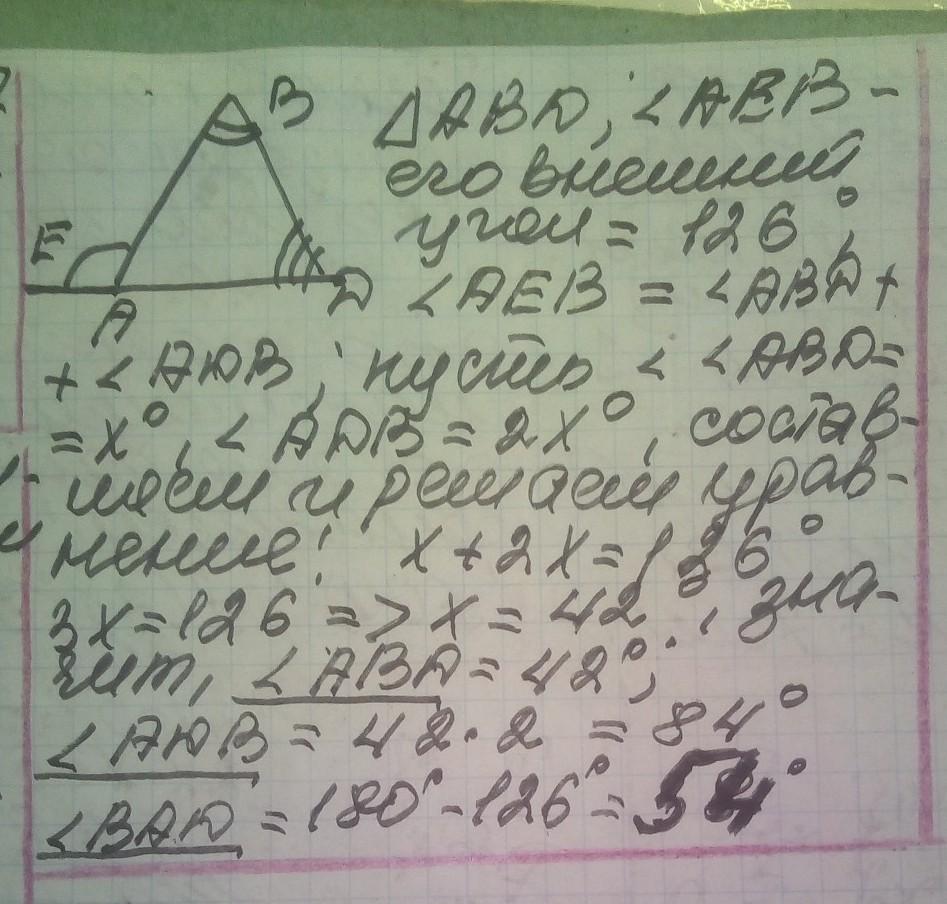 B
E
A
D
∆ABD, ∠AEB -
его внешний
угол = 126°,
∠AEB = ∠ABD +
+ ∠ADB; пусть < ∠ABD =
= x°, ∠ADB = 2x°, состав-
ляем и решаем урав-
нение: x + 2x = 126°
3x = 126 => x = 42°, зна-
чит, ∠ABD = 42°;
∠ADB = 42 · 2 = 84°
∠BAD = 180° - 126° = 54°